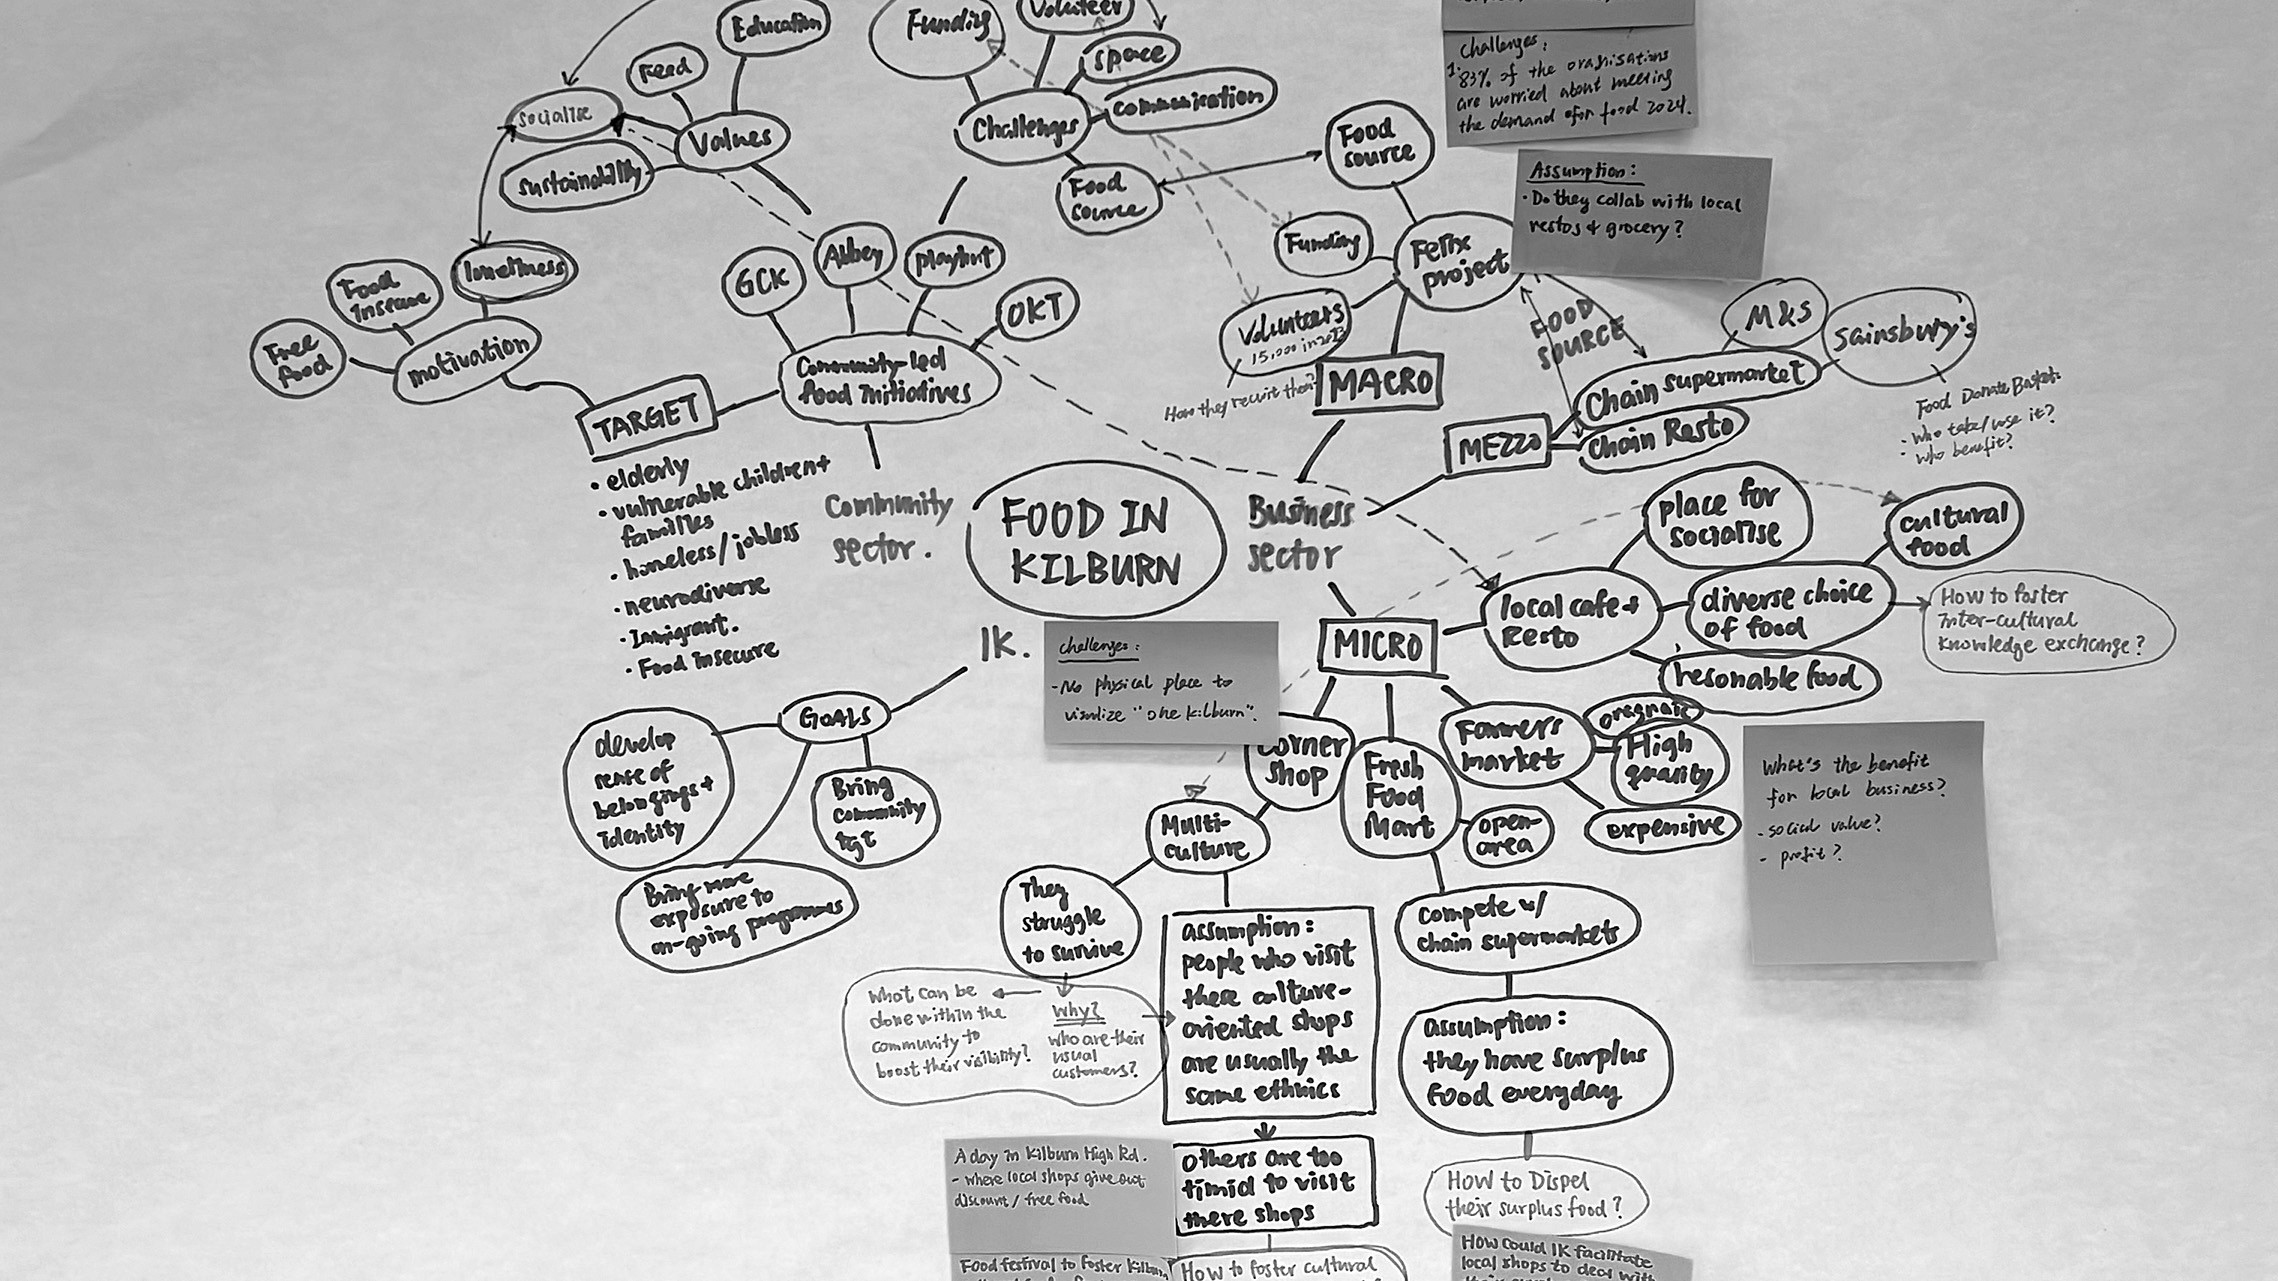 Education
Funding
Volunteer
Feed
space
socialise
Values
Challenges
communication
sustainability
Food
source
Food
source
Challenges:
1. 83% of the oragnisations
are worried about meeting
the demand ofor food 2024.
Assumption:
• Do they collab with local
restos & grocery?
loneliness
Food
Insecure
Free
food
motivation
GCK
Abbey
playhut
OKT
Community-led
food initiatives
Funding
Felix
project
Volunteers
15,000 in 2023
How they recruit them?
MACRO
FOOD
SOURCE
M&S
Sainsbury's
Chain supermarket
Chain Resto
MEZZO
Food Donate Basket:
• Who take/use it?
• Who benefit?
TARGET
• elderly
• vulnerable children +
families
• homeless/jobless
• neurodiverse
• Immigrant.
• Food insecure
Community
sector.
FOOD IN
KILBURN
Business
sector
place for
socialise
cultural
food
local cafe +
Resto
diverse choice
of food
resonable food
How to foster
Inter-cultural
Knowledge exchange?
MICRO
1K.
challenges:
- No physical place to
visualize "one kilburn".
GOALS
develop
sense of
belongings +
identity
Bring
community
tgt
Bring more
exposure to
on-going programmes
Corner
shop
Fresh
Food
Mart
Farmers
market
oragnaic
High
quality
expensive
open-
area
What's the benefit
for local business?
- social value?
- profit?
Multi-
culture
They
struggle
to survive
assumption:
people who visit
these culture-
oriented shops
are usually the
same ethnics
compete w/
chain supermarkets
What can be
done within the
community to
boost their visibility?
Why?
who are their
usual
customers?
assumption:
they have surplus
food everyday
A day in Kilburn High Rd.
- where local shops give out
discount / free food
others are too
timid to visit
there shops
How to Dispel
their surplus food?
Food festival to foster Kilburn
How to foster cultural
How could 1K facilitate
local shops to deal with